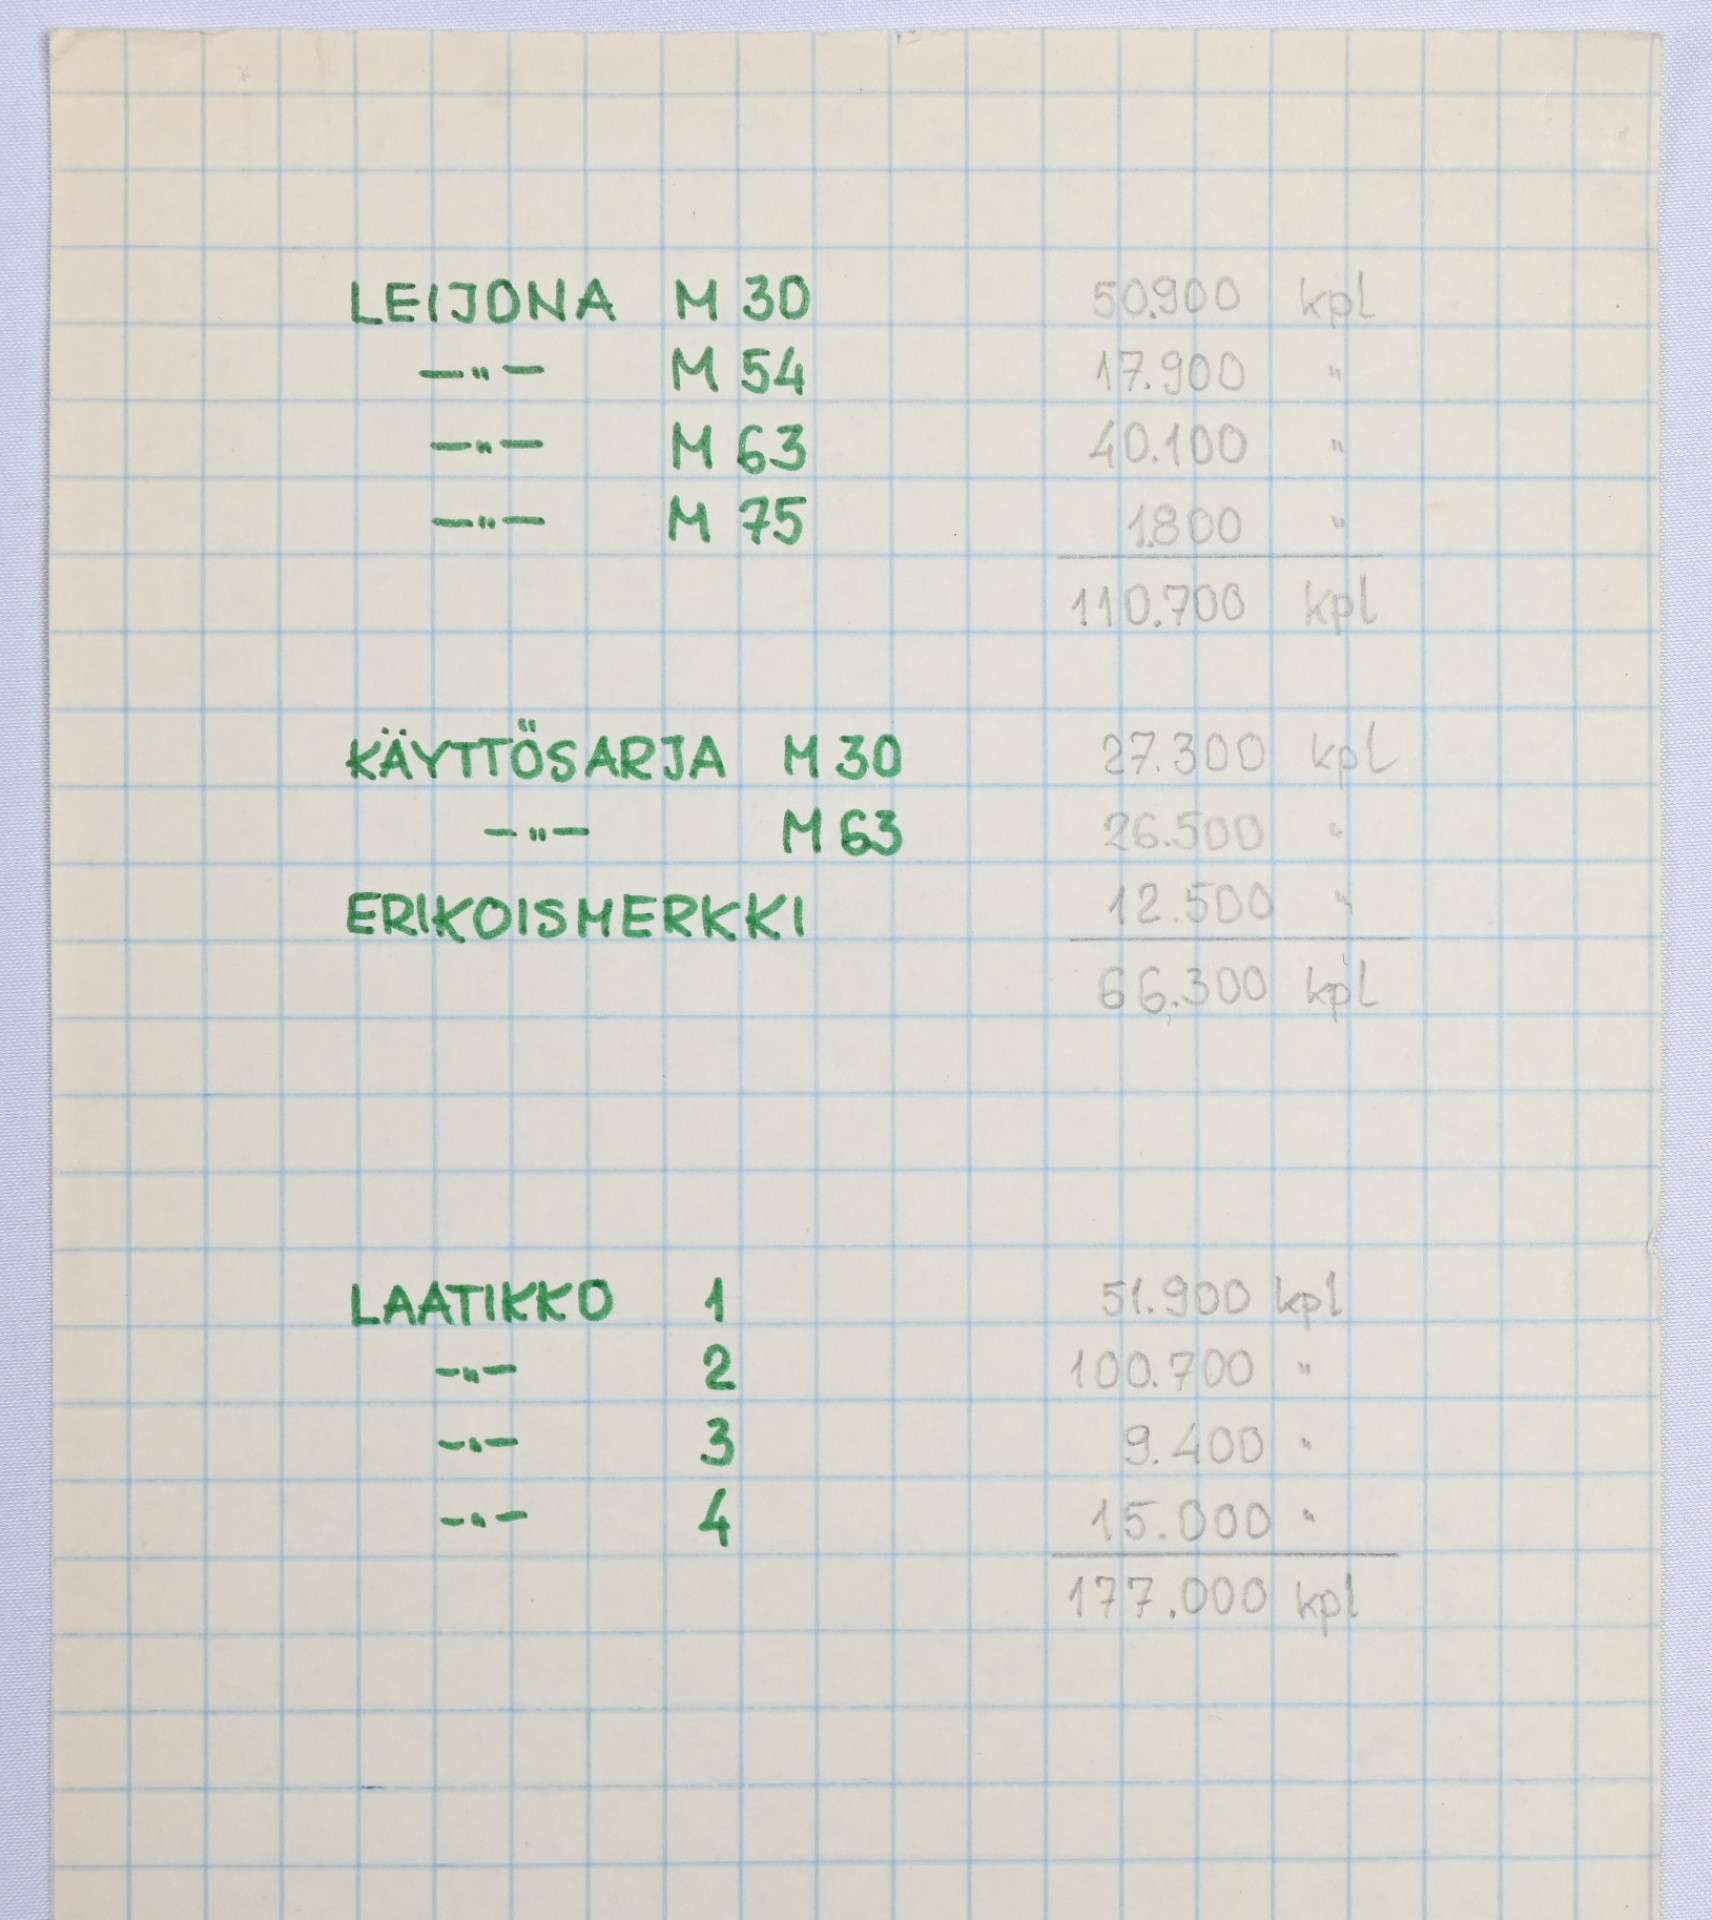 LEIJONA M 30 50.900 kpl
—"— M 54 17.900 "
—"— M 63 40.100 "
—"— M 75 1.800 "
110.700 kpl
KÄYTTÖSARJA M 30 27.300 kpl
—"— M 63 26.500 "
ERIKOISMERKKI 12.500 "
66.300 kpl
LAATIKKO 1 51.900 kpl
—"— 2 100.700 "
—"— 3 9.400 "
—"— 4 15.000 "
177.000 kpl